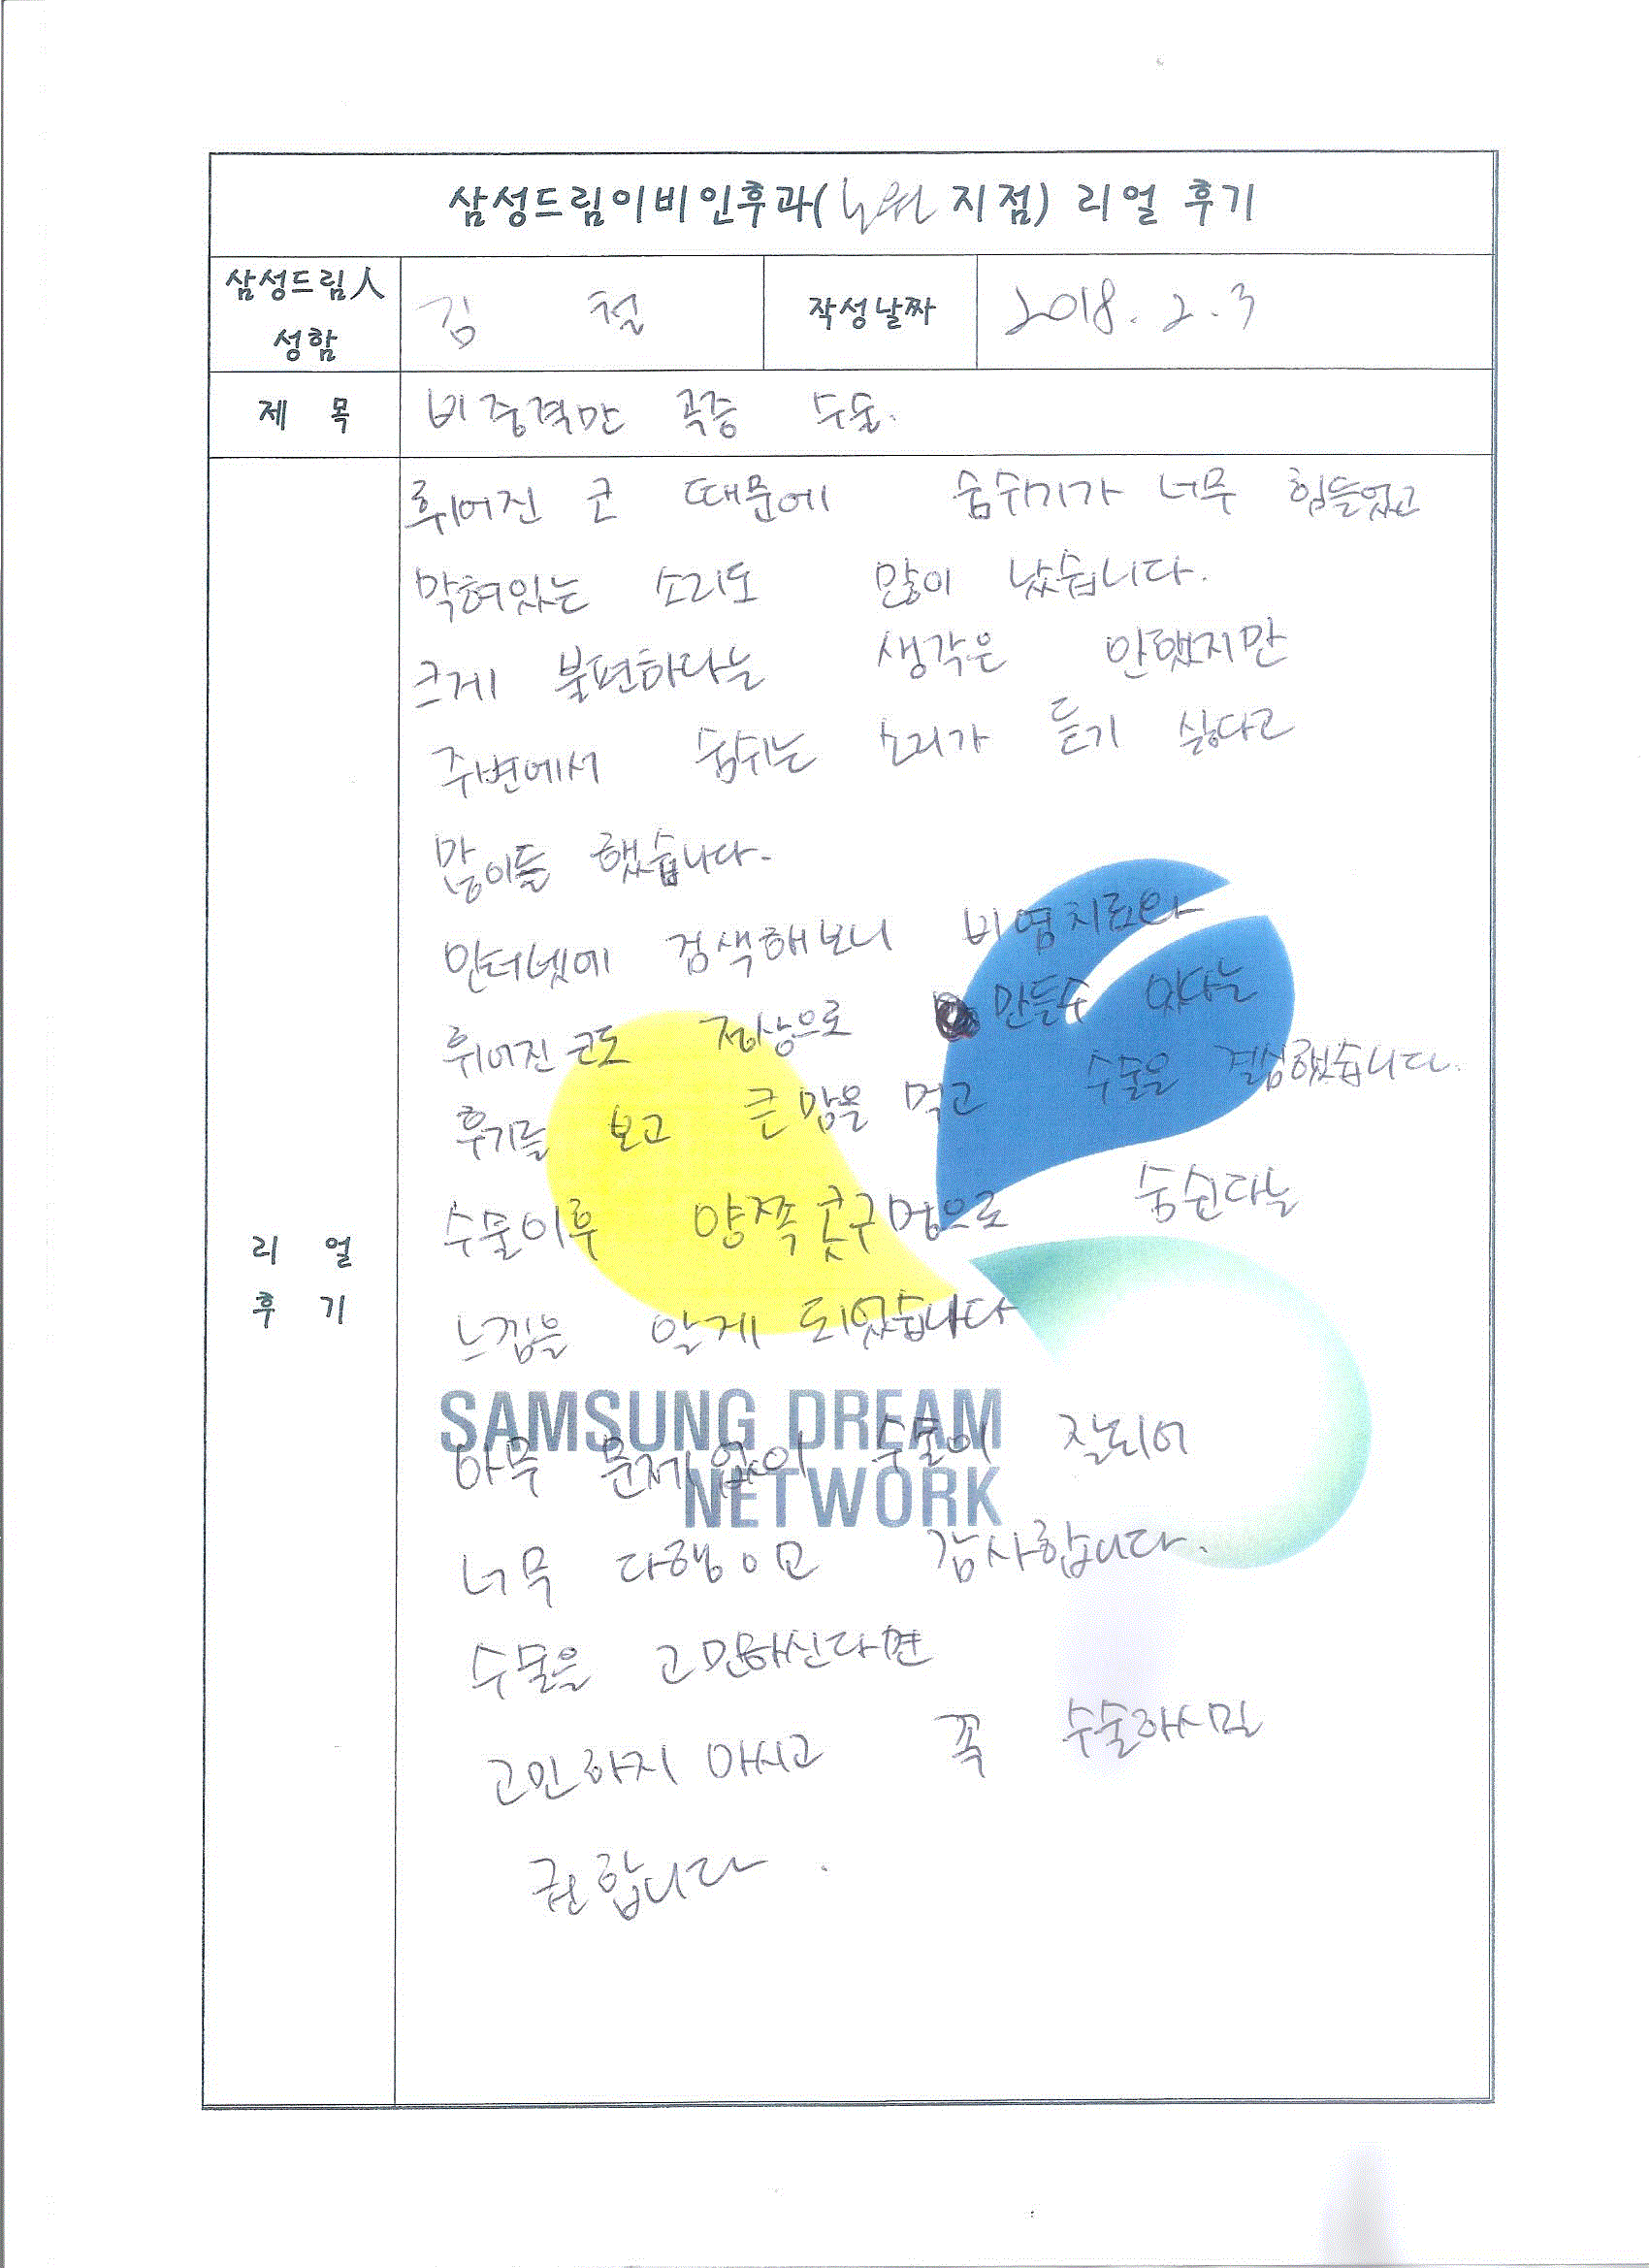 삼성드림이비인후과(노원 지점) 리얼 후기
삼성드림人 성함
김 철
작성날짜
2018. 2. 3
제 목
비중격만 곡증 수술.
리 얼 후 기
휘어진 코 때문에 숨쉬기가 너무 힘들었고
막혀있는 소리도 많이 났습니다.
크게 불편하다는 생각은 안했지만
주변에서 숨쉬는 소리가 듣기 싫다고
많이들 했습니다.
인터넷에 검색해보니 비염치료와
휘어진 코도 정상으로 만들수 있다는
후기를 보고 큰 맘을 먹고 수술을 결심했습니다.
수술이후 양쪽 콧구멍으로 숨쉰다는
느낌을 알게 되었습니다
SAMSUNG DREAM
NETWORK
아무 문제 없이 수술이 잘되어
너무 다행이고 감사합니다.
수술을 고민하신다면
고민하지 마시고 꼭 수술하시길
권합니다.